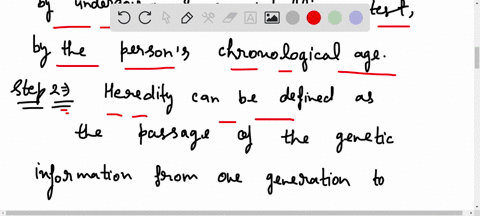 test,
by the person's chronological age.
Step 2⇒ Heredity can be defined as
the passage of the genetic
information from one generation to